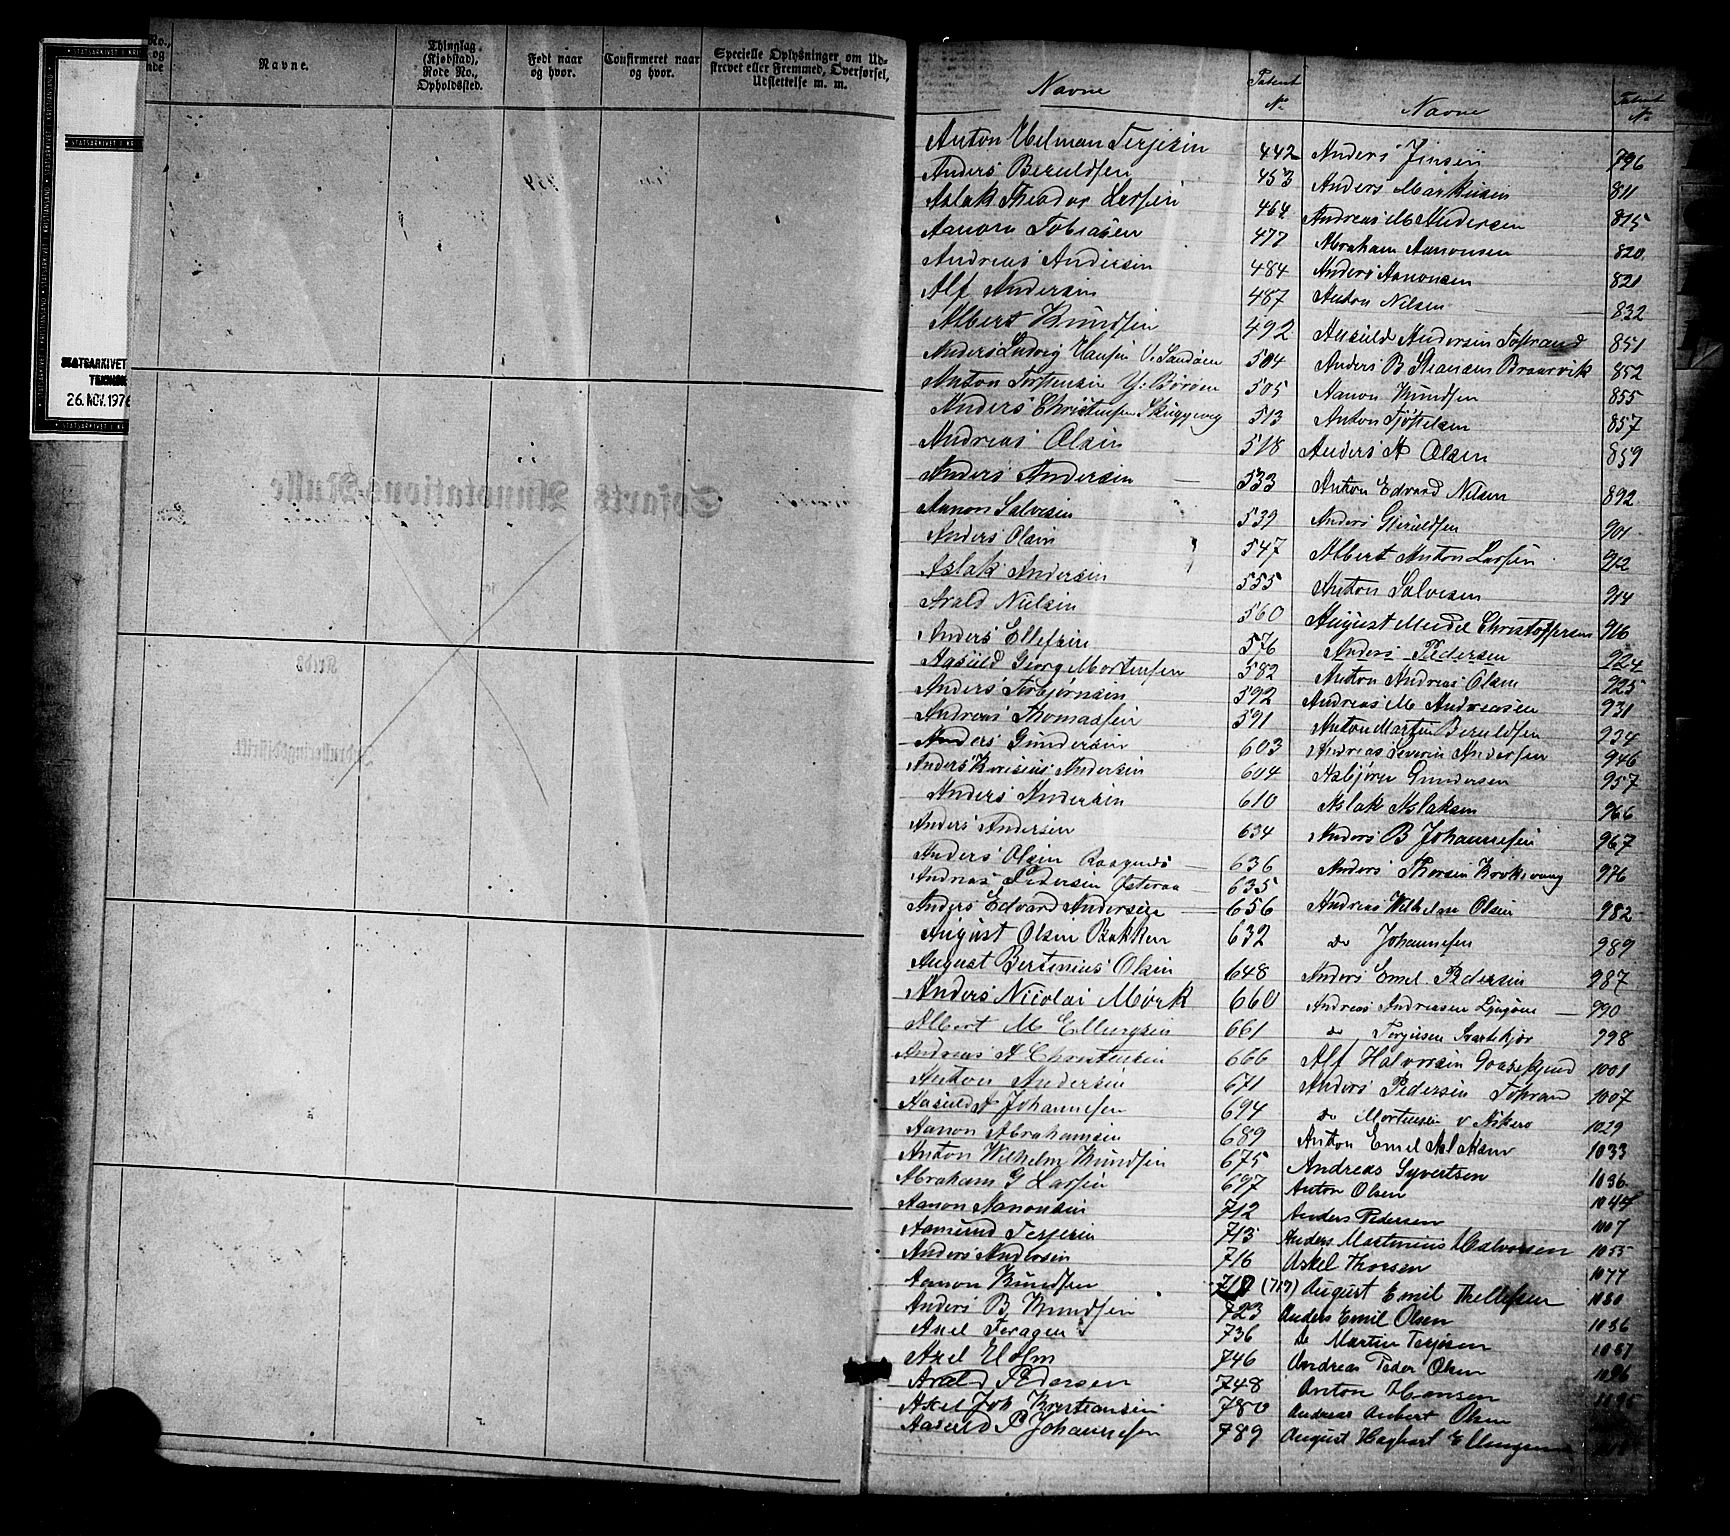 STATSARKIVET I KRISTIANSAND
STATSARKIVET
26. NOV. 1976
No. og
Navne.
Thinglag. (Kjøbstad), Rode No., Opholdssted.
Født naar og hvor.
Confirmeret naar og hvor.
Specielle Oplysninger om Udskrevet eller Fremmed, Overførsel, Udslettelse m. m.
Søfarts Annotations-Rulle
Navne Patent No
Anton Helman Terjesen 442
Anders Beruldsen 453
Aslak Theodor Larsen 464
Aanon Tobiasen 477
Andreas Andersen 484
Alf Andersen 487
Albert Knudsen 492
Anders Ludvig Hansen V. Sandøen 504
Anton Torstensen Y. Børøen 505
Anders Christensen Skuggevig 513
Andreas Olsen 518
Anders Andersen 533
Aanon Salvesen 539
Anders Olsen 547
Aslak Andersen 555
Arald Nielsen 560
Anders Ellefsen 576
Aasuld Georg Mortensen 582
Anders Torbjørnsen 592
Andreas Thomassen 591
Anders Gundersen 603
Anders Andersen 604
Anders Andersen 610
Anders Andersen 634
Anders Olsen 636
Andreas Pedersen Østeraa 635
Anders Edvard Andersen 656
August Olsen Bakken 632
August Bertinius Olsen 648
Anders Nicolai Mørk 660
Albert M Ellingsen 661
Andreas A Christensen 666
Anton Andersen 671
Aasuld A Johannesen 694
Aanon Abrahamsen 689
Anton Wilhelm Knudsen 675
Abraham G Larsen 697
Aanon Aanonsen 712
Aamund Terjesen 713
Anders Andersen 716
Aanon Knudsen (717)
Anders B Knudsen 723
Axel Feragen 736
Axel Holm 746
Arald Pedersen 748
Axel Joh Kristiansen 780
Aasuld P Johannesen 789
Navne Patent No
Anders Jensen 796
Anders Markusen 811
Andreas M Andersen 815
Abraham Aanonsen 820
Anders Aanonsen 821
Anton Nilsen 832
Aasuld Andersen Tostrand 851
Anders B Steansen Braarvik 852
Aanon Knudsen 855
Anton Tjøstelsen 857
Anders A Olsen 859
Anton Edvard Nilsen 892
Anders Gjeruldsen 901
Albert Anton Larsen 912
Anton Salvesen 914
August Meidel Christoffersen 916
Anders Pedersen 924
Anton Andreas Olsen 925
Andreas M Andreasen 931
Anton Martin Beruldsen 934
Andreas Severin Andersen 946
Asbjørn Gundersen 957
Aslak Aslaksen 966
Anders B Johannesen 967
Anders Thorsen Krokevaag 976
Andreas Wilhelm Olsen 982
do Johannesen 989
Anders Emil Pedersen 987
Andreas Andreasen 990
do Terjesen 998
Alf Halvorsen 1001
Anders Pedersen Tostrand 1007
do Mortensen v Askerø 1029
Anton Emil Aslaksen 1033
Andreas Syvertsen 1036
Anton Olsen 1044
Anders Pedersen 1007
Anders Martinius Halvorsen 1055
Askel Thorsen 1077
August Emil Thellefsen 1080
Anders Emil Olsen 1086
do Martin Terjesen 1087
Andreas Peder Olsen 1096
Anton Hansen
Andreas Aubert Olsen
August Hagbart Ellingsen